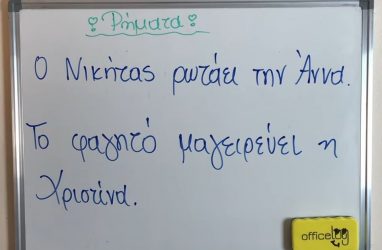 Ρήματα
Ο Νικήτας ρωτάει την Άννα.
Το φαγητό μαγειρεύει η
Χριστίνα.
office